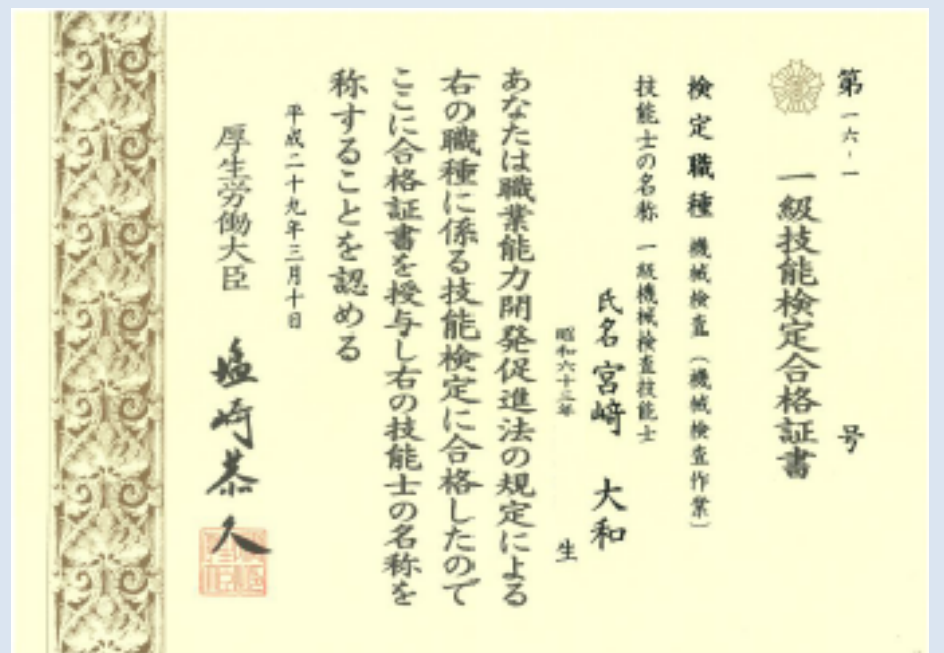 第一六-一 号
一級技能検定合格証書
検定職種 機械検査(機械検査作業)
技能士の名称 一級機械検査技能士
氏名 宮﨑 大和
昭和六十三年 生
あなたは職業能力開発促進法の規定による
右の職種に係る技能検定に合格したので
ここに合格証書を授与し右の技能士の名称を
称することを認める
平成二十九年三月十日
厚生労働大臣 塩崎恭久